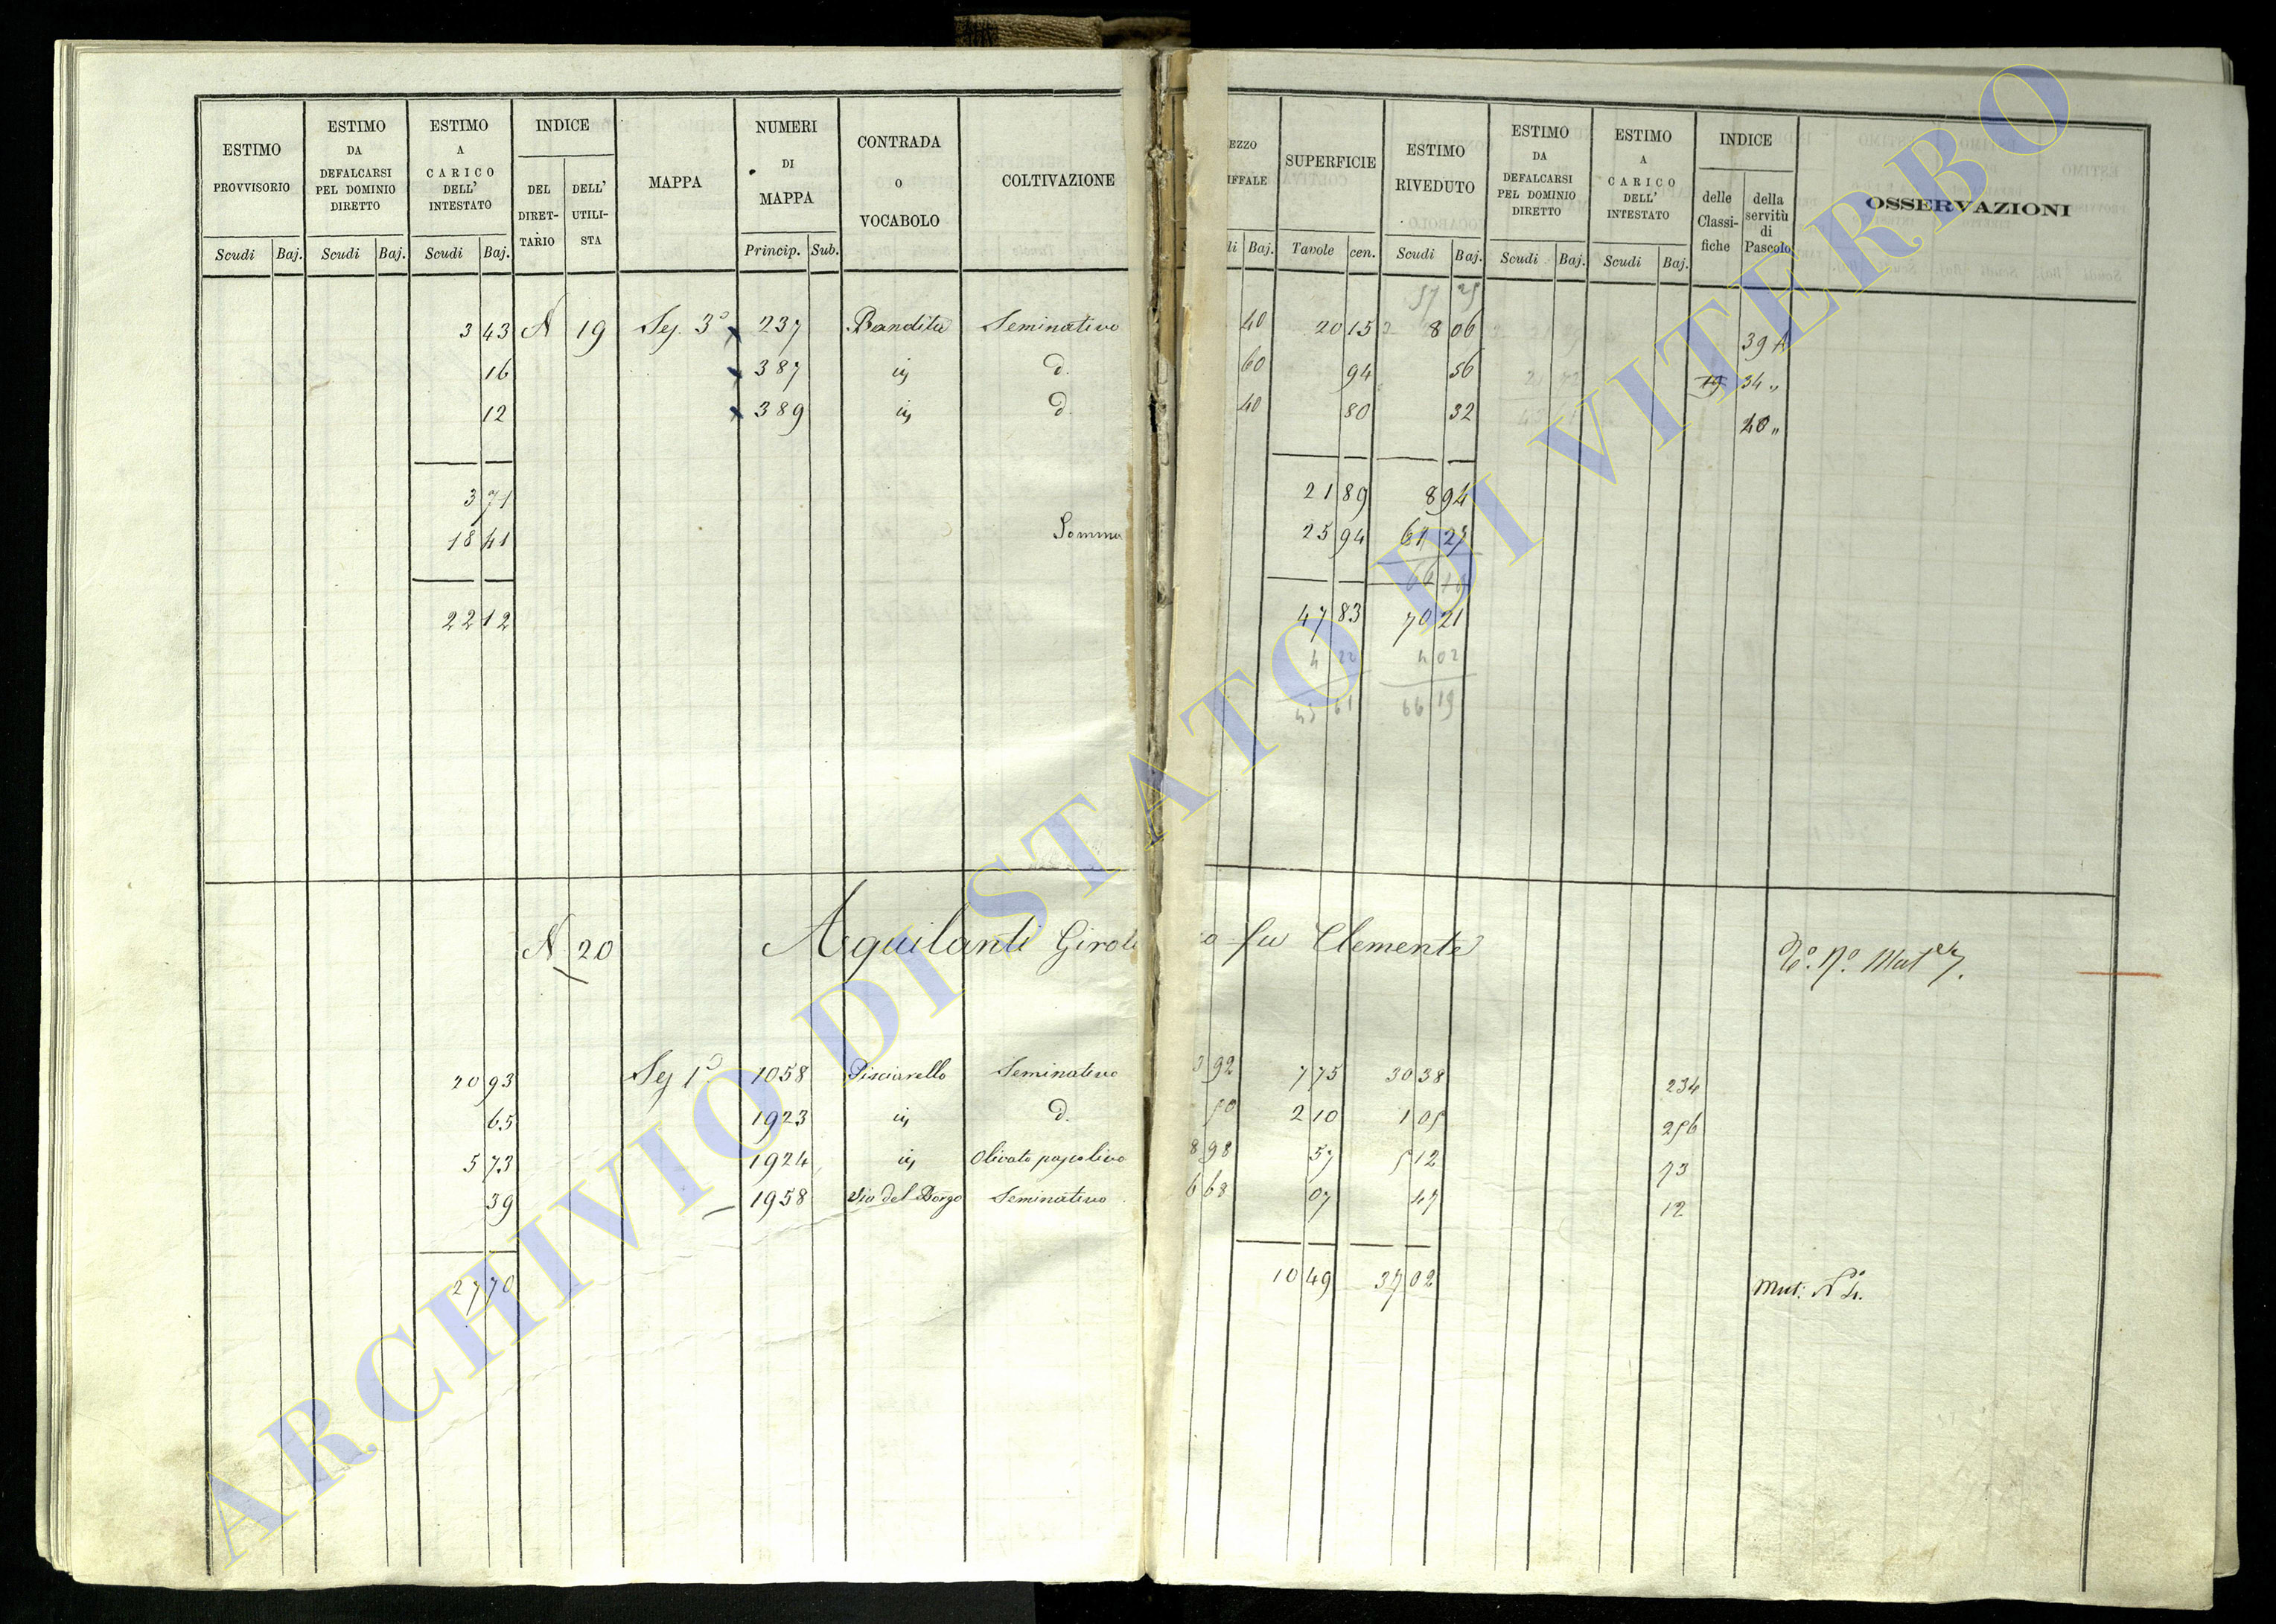 ESTIMO PROVVISORIO | ESTIMO DA DEFALCARSI PEL DOMINIO DIRETTO | ESTIMO A CARICO DELL' INTESTATO | INDICE DEL DIRETTARIO | DELL' UTILISTA | MAPPA | NUMERI DI MAPPA | CONTRADA O VOCABOLO | COLTIVAZIONE | EZZO IFFALE | SUPERFICIE | ESTIMO RIVEDUTO | ESTIMO DA DEFALCARSI PEL DOMINIO DIRETTO | ESTIMO A CARICO DELL' INTESTATO | INDICE delle Classifiche | della servitù di Pascolo | OSSERVAZIONI
Scudi Baj. Scudi Baj. Scudi Baj. Princip. Sub. di Baj. Tavole cen. Scudi Baj. Scudi Baj. Scudi Baj.
57 25
3 43 N 19 Sez. 3ª 237 Bandita Seminativo 40 20 15 8 06 39 A
16 387 id. 60 94 56 19 34 "
12 389 id. 40 80 32 40 "
3 71 21 89 8 94
18 41 Somma 25 94 61 27
22 12 47 83 70 21
4 22 4 02
43 61 66 19
N 20 Aquilanti Girol co fu Clemente
20 93 Sez 1ª 1058 Pisciarello Seminativo 3 92 7 75 30 38 234
65 1923 id. 50 2 10 1 05 256
5 73 1924 Olivato pascolivo 8 98 57 5 12 73
39 1958 Via del Borgo Seminativo 6 68 07 47 12
27 70 10 49 37 02 Mut:
ARCHIVIO DI STATO DI VITERBO